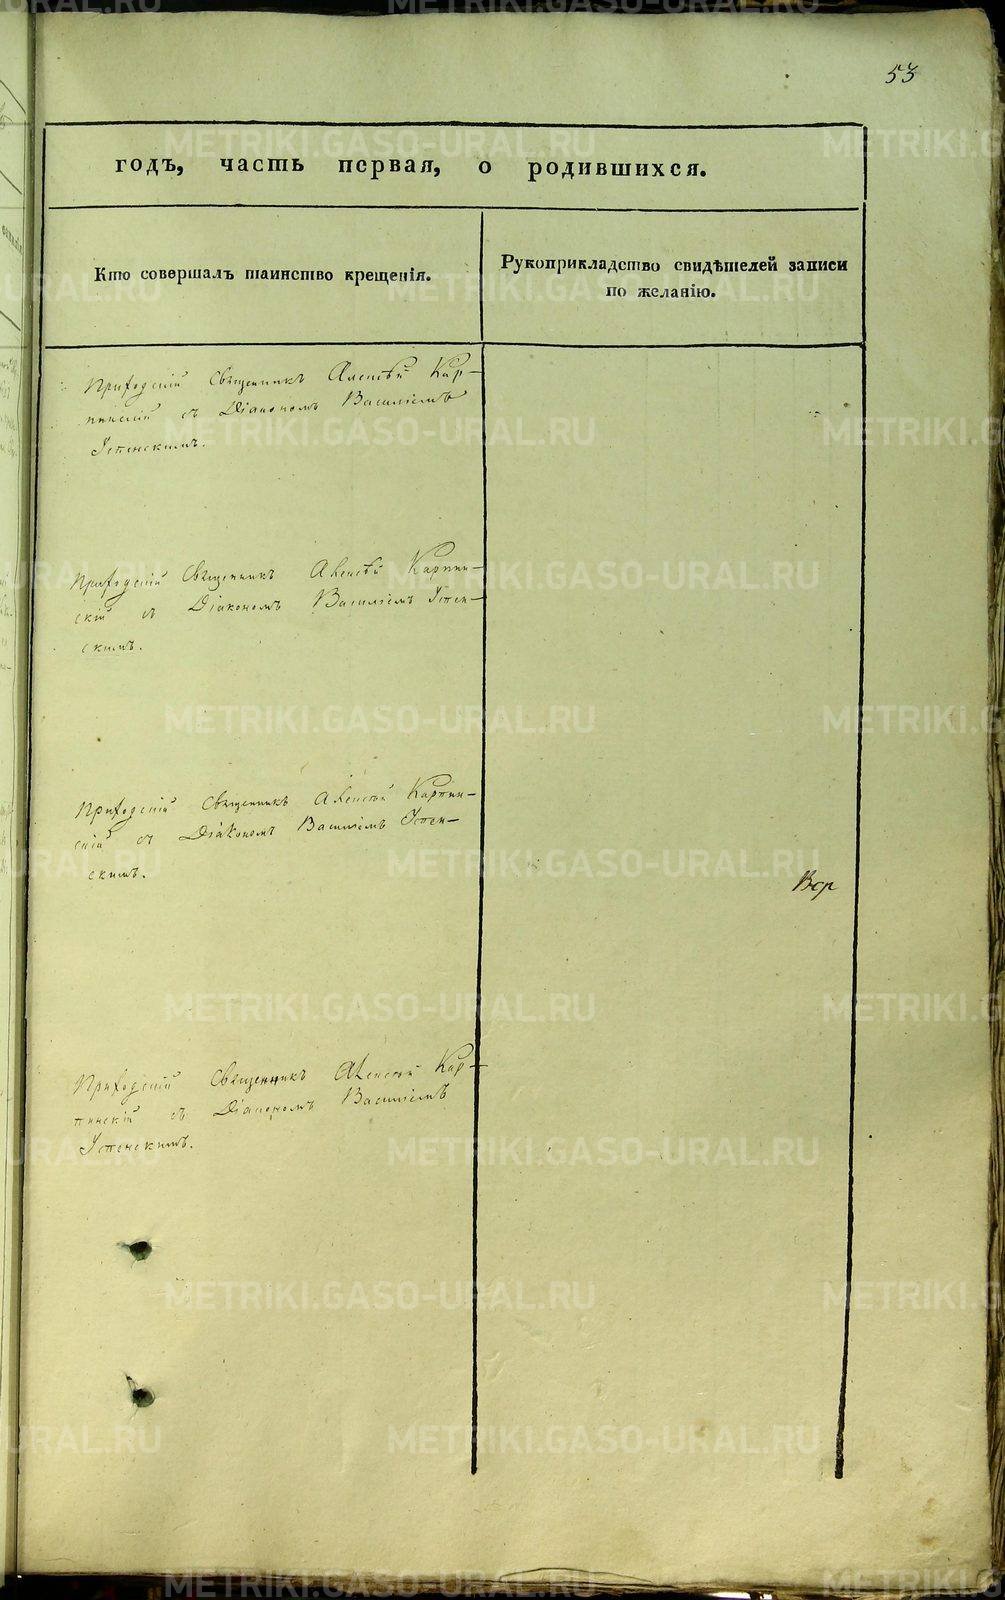 53
годъ, часть первая, о родившихся.
Кто совершалъ таинство крещенія.
Рукоприкладство свидѣтелей записи
по желанію.
Приходскій Священникъ Алексѣй Кар-
пинскій съ Діакономъ Василіемъ
Успенскимъ.
Приходскій Священникъ Алексѣй Карпин-
скій съ Діакономъ Василіемъ Успен-
скимъ.
Приходскій Священникъ Алексѣй Карпин-
скій съ Діакономъ Василіемъ Успен-
скимъ.
Приходскій Священникъ Алексѣй Кар-
пинскій съ Діакономъ Василіемъ
Успенскимъ.
METRIKI.GASO-URAL.RU